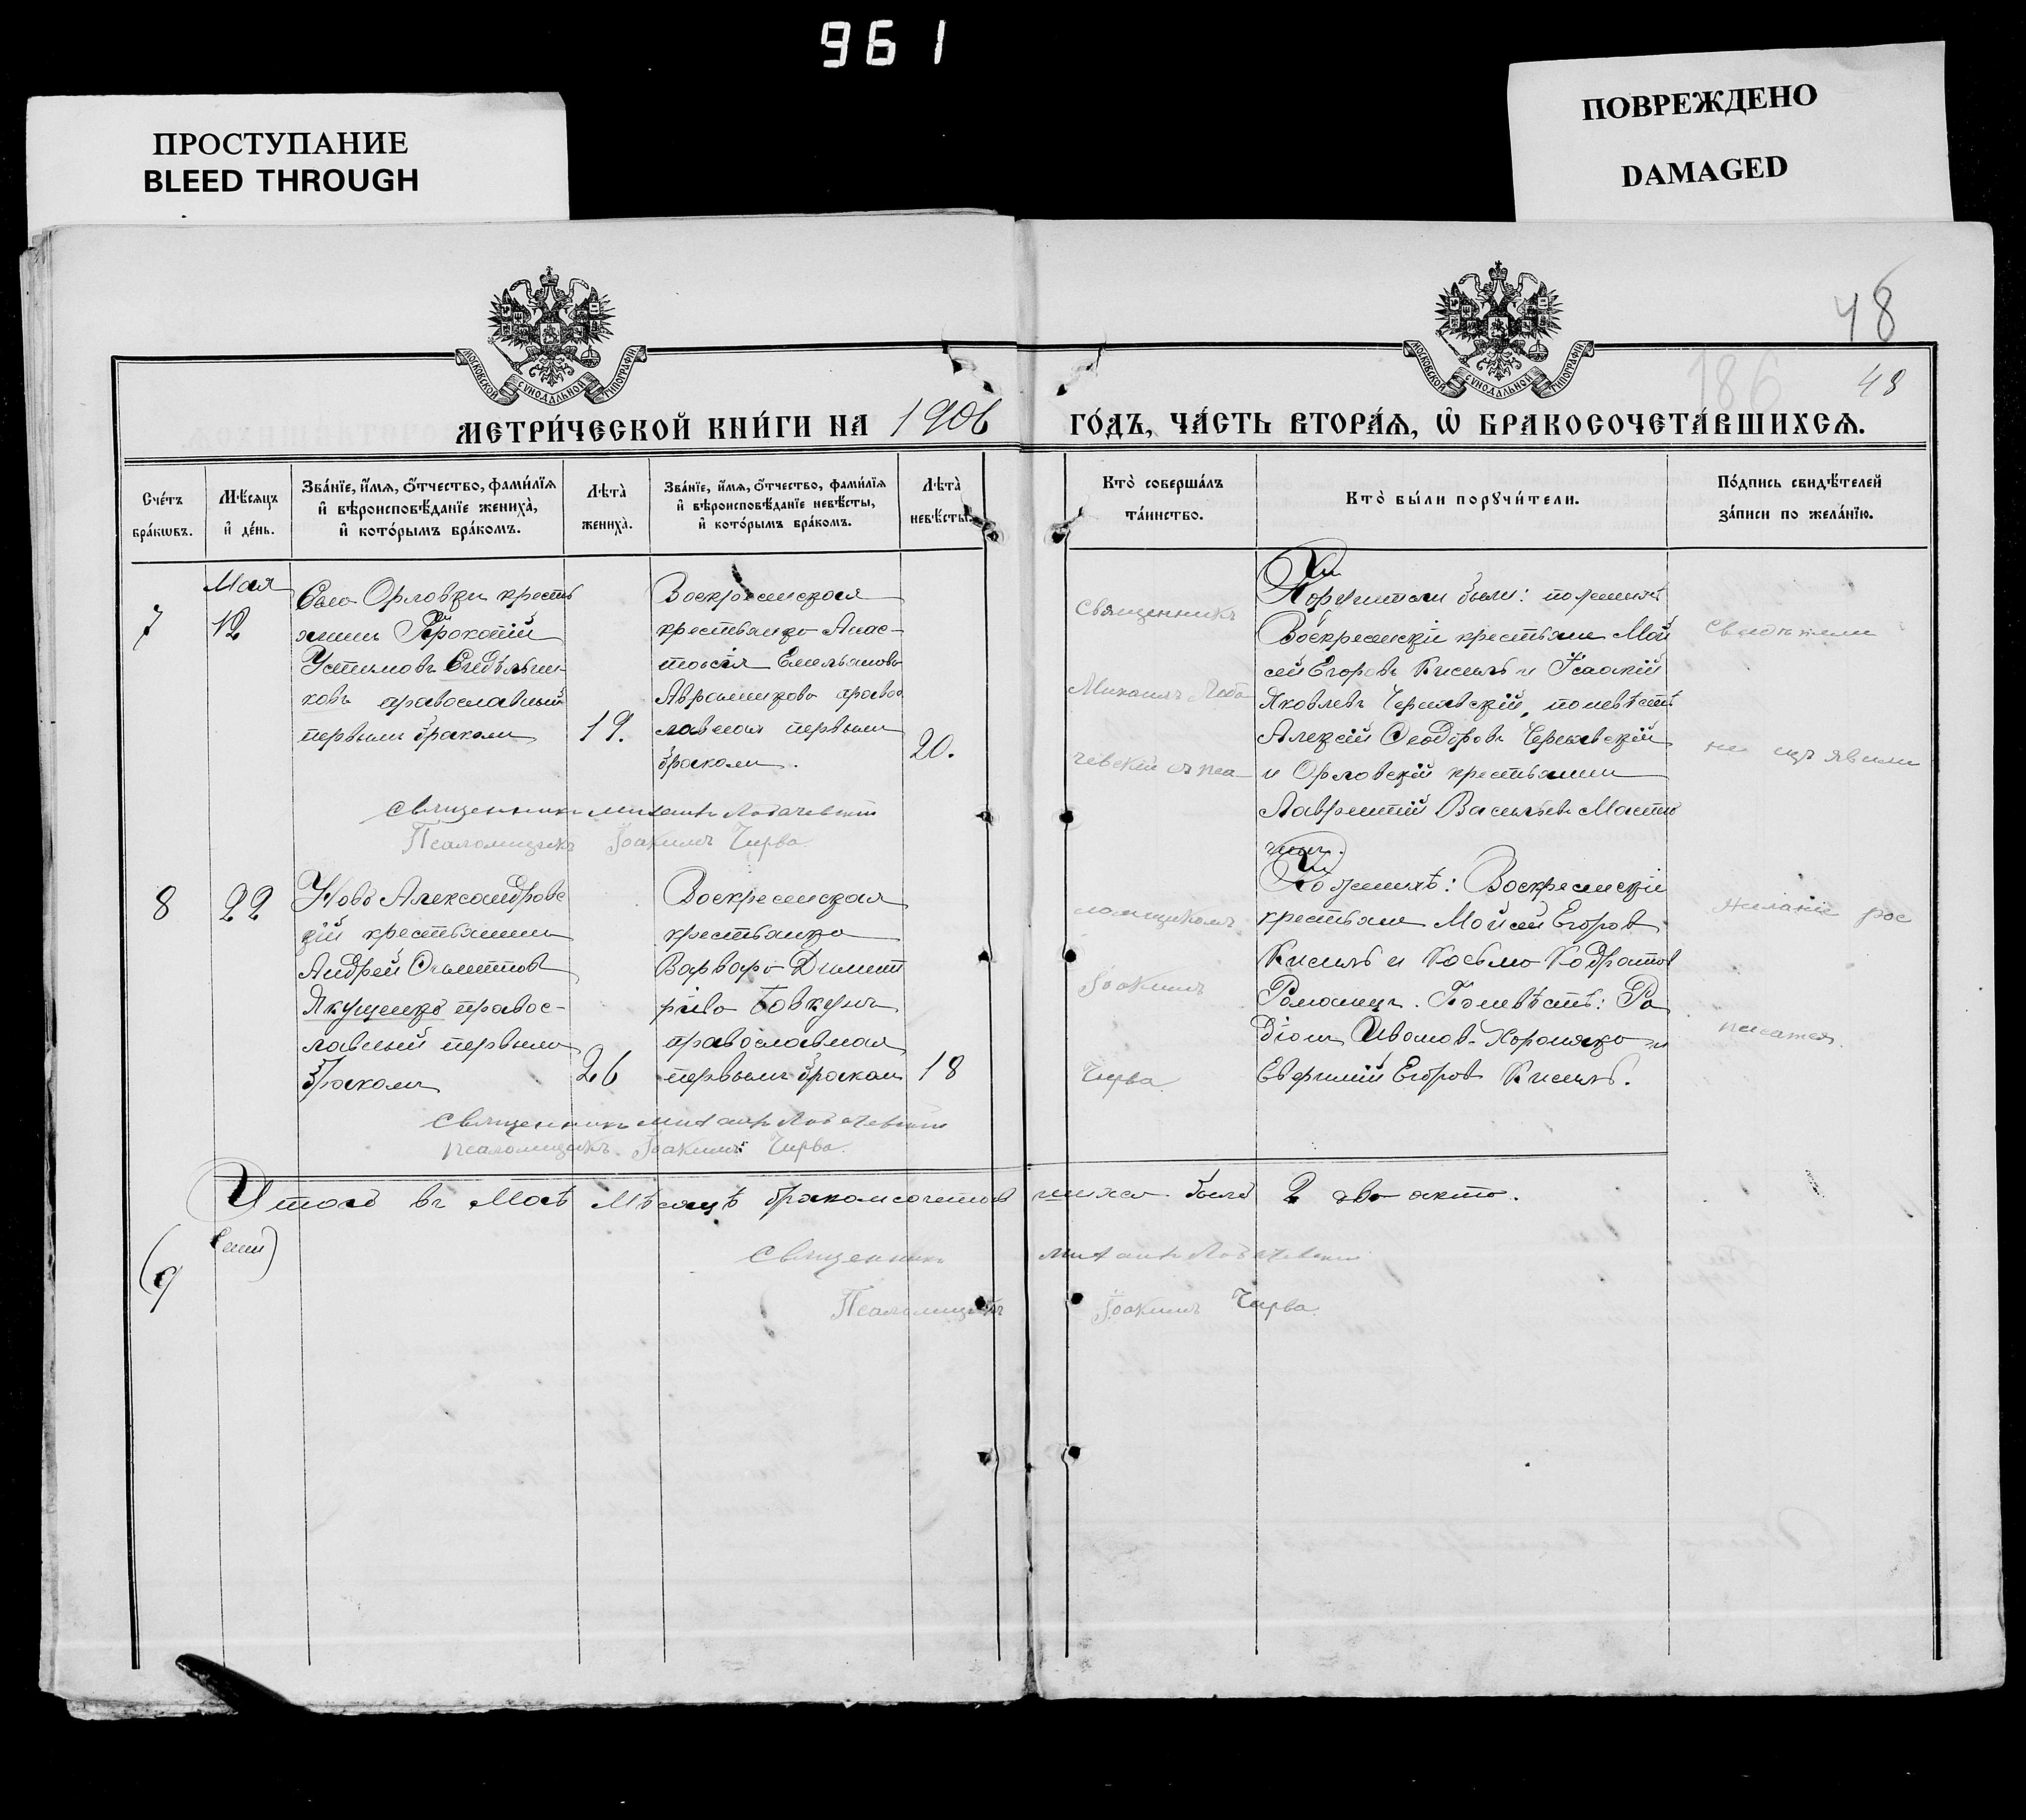 961
ПРОСТУПАНИЕ
BLEED THROUGH
ПОВРЕЖДЕНО
DAMAGED
МОСКОВСКОЙ СѴНОДАЛЬНОЙ ТИПОГРАФІИ
МОСКОВСКОЙ СѴНОДАЛЬНОЙ ТИПОГРАФІИ
48
186
48
МЕТРИ́ЧЕСКОЙ КНИ́ГИ НА 1906 ГО́ДЪ, ЧА́СТЬ ВТОРА́Ѧ, Ѽ БРАКОСОЧЕТА́ВШИХСѦ.
Сче́тъ
бра́кѡвъ.
Мѣ́сяцъ
и҆ де́нь.
Зва́нїе, и҆́мя, ѻ҆́тчество, фами́лїя
и҆ вѣроисповѣ́данїе жениха̀,
и҆ кото́рымъ бра́комъ.
Лѣта̀
жениха̀.
Зва́нїе, и҆́мя, ѻ҆́тчество, фами́лїя
и҆ вѣроисповѣ́данїе невѣ́сты,
и҆ кото́рымъ бра́комъ.
Лѣта̀
невѣ́сты.
Кто̀ соверша́лъ
та́инство.
Кто̀ бы́ли порꙋчи́тели.
По́дпись свидѣ́телей
за́писи по жела́нїю.
7
Мая
12
Села Орловки кресть
янинъ Прокопій
Устимовъ Сидѣльни-
ковъ православный
первымъ бракомъ
19.
Воскресенская
крестьянка Анас-
тасія Емельянова
Авраменкова правос
лавная первымъ
бракомъ.
20.
Священникъ
Михаилъ Лоба
чевскій съ пса
Поручители были: по женихѣ
Воскресенскіе крестьяне Мой
сей Егоровъ Кисиль и Ісаакій
Яковлевъ Чернявскій, по невѣстѣ
Алексій Ѳеодоровъ Чернявскій
и Орловскій крестьянинъ
Лаврентій Васильевъ Масти
Свидѣтели
не изъявили
Священникъ Михаилъ Лобачевскій
Псаломщикъ Іоакимъ Чирва
8
22
Ново Александровс
кій крестьянинъ
Андрей
Якущенко правос-
лавный первымъ
бракомъ
26
Воскресенская
крестьянка
Варвара Димит
ріева Бовкунъ
православная
первымъ бракомъ
18
ломщикомъ
Іоакимъ
Чирва
По женихѣ: Воскресенскіе
крестьяне Мойсей Егоровъ
Кисиль и Косьма Кодратов
Романецъ. По невѣстѣ: Ро
діонъ Ивановъ Хоронжко и
Евфимій Егоровъ Кисиль.
желаніе рос
писатся.
Священникъ Михаилъ Лобачевскій
псаломщикъ Іоакимъ Чирва
Итого въ Маѣ Мѣсяцѣ бракомсочетав шихся было 2 два акта.
Священникъ Михаилъ Лобачевскій
(9
Псаломщикъ Іоакимъ Чирва